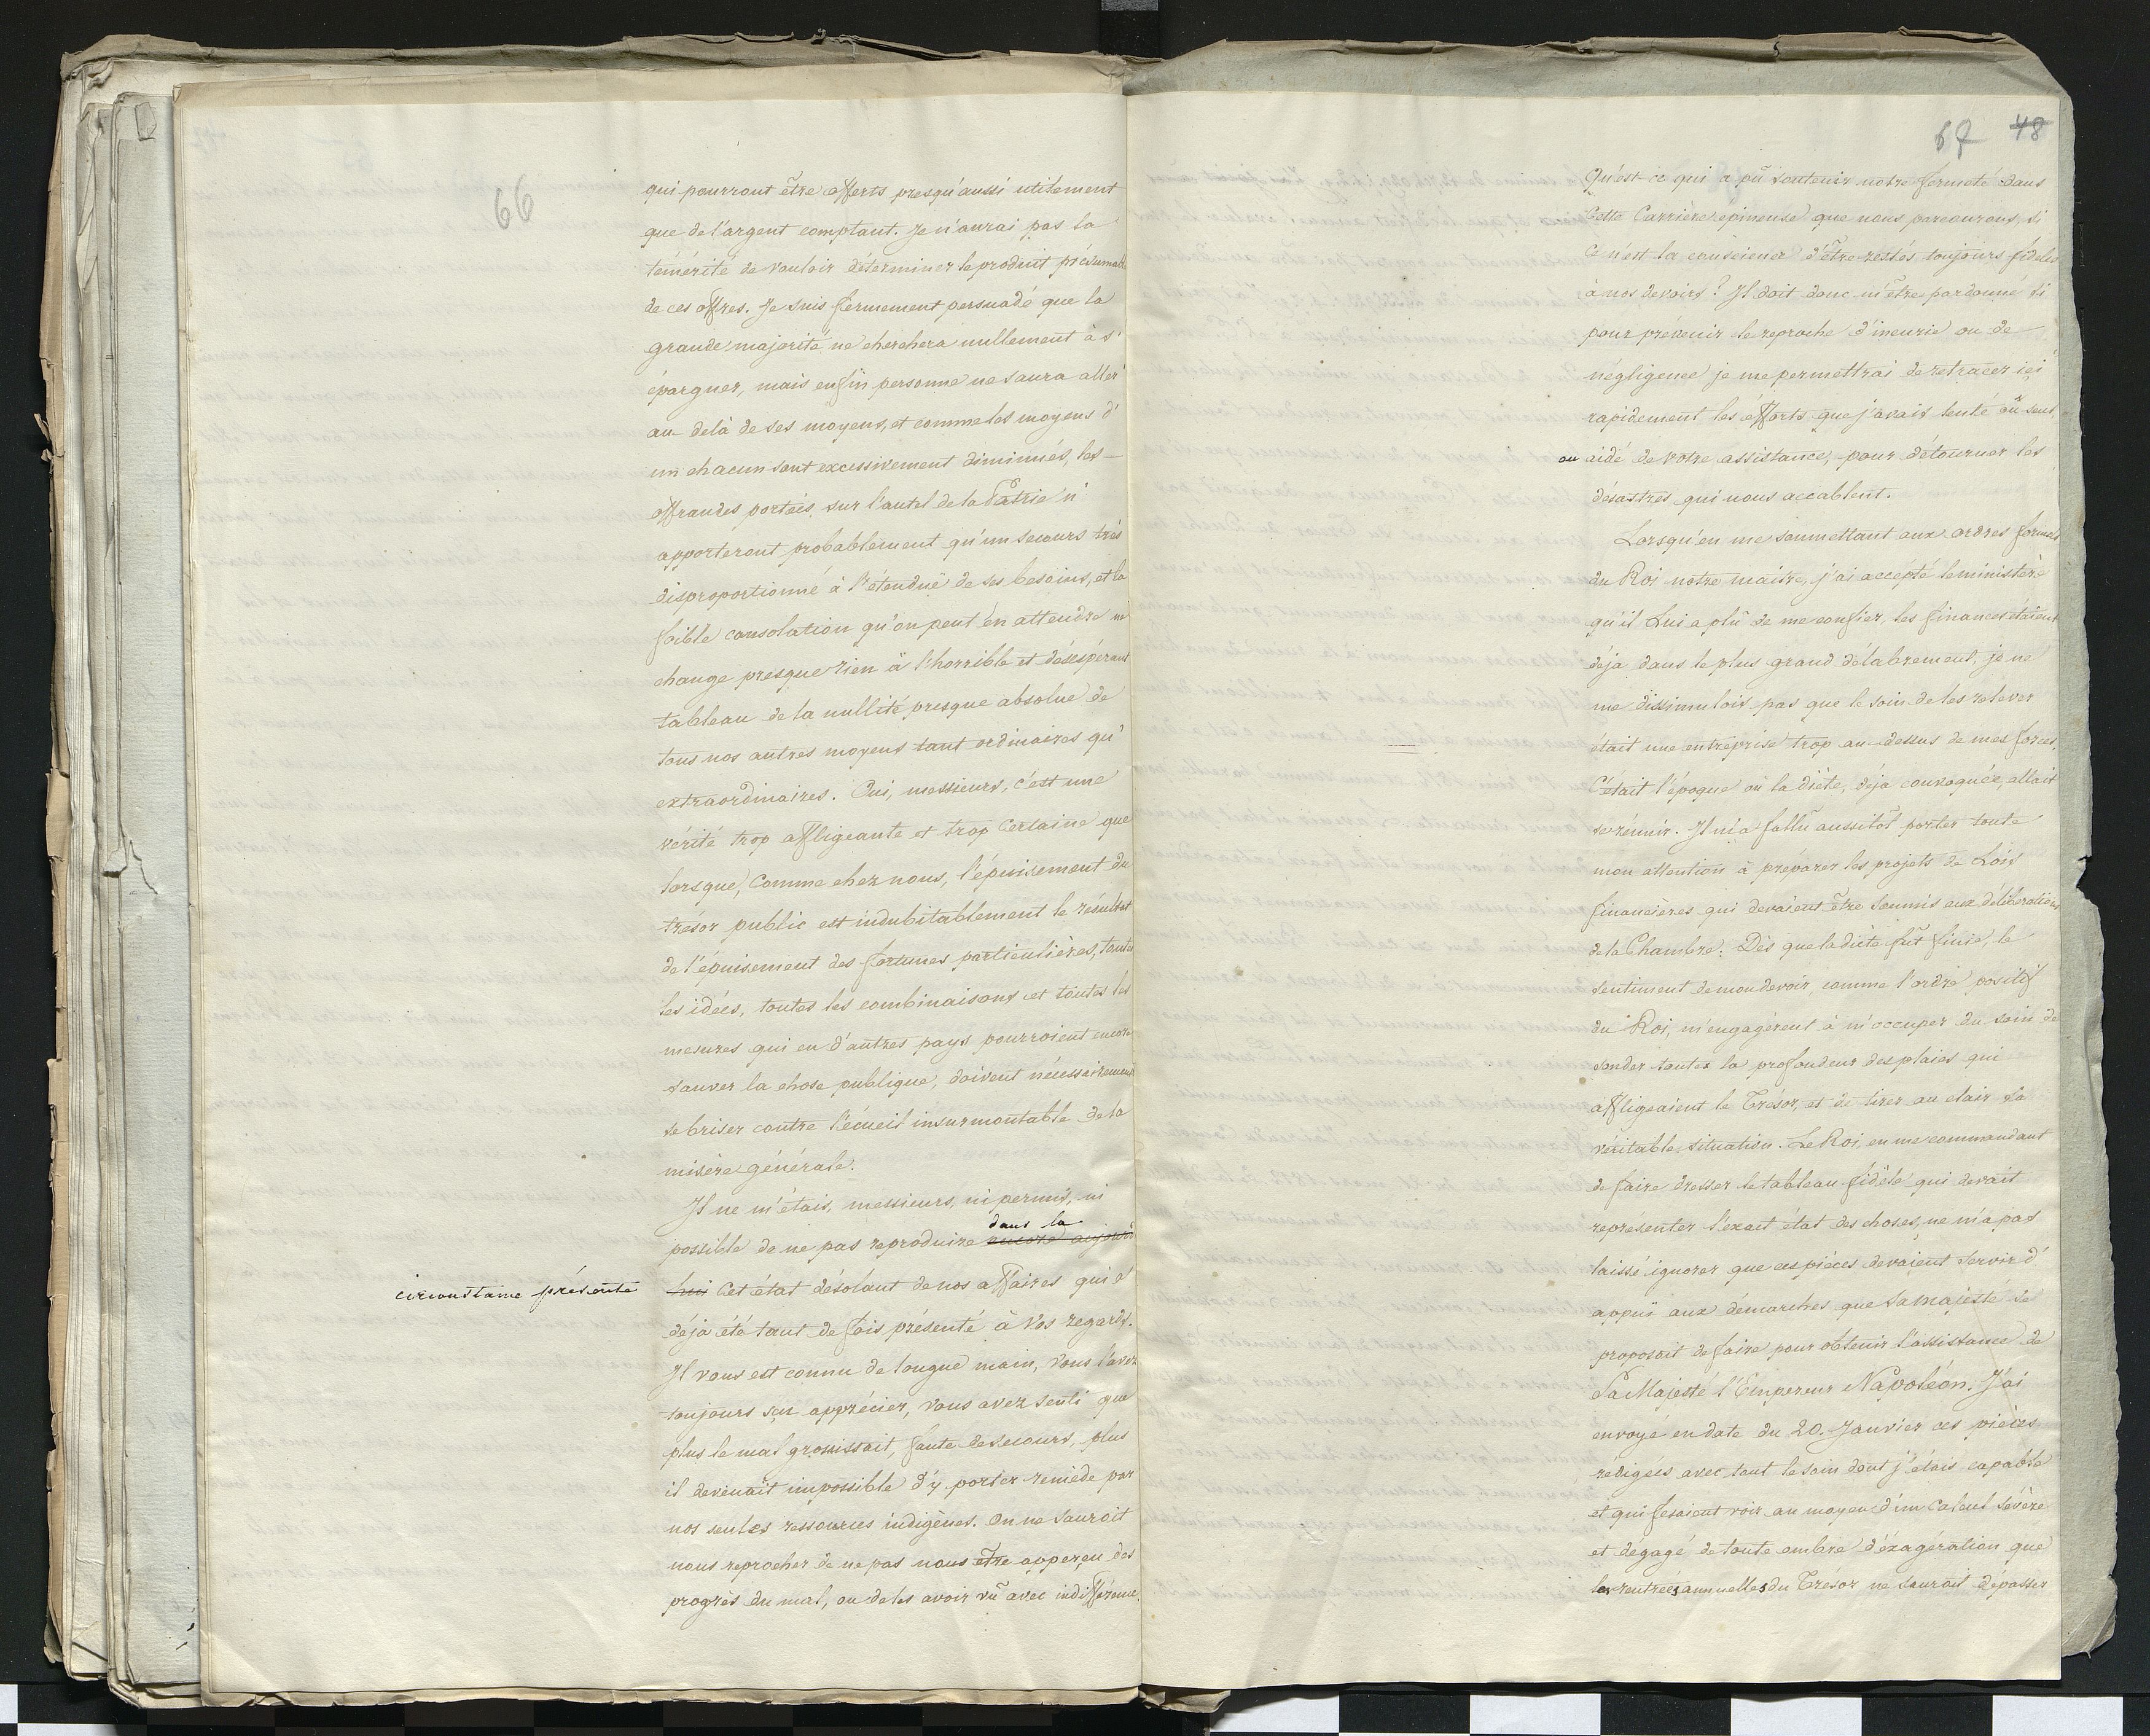 66
qui pourront être offerts presqu'aussi utilement
que de l'argent comptant. Je n'aurai pas la
témérité de vouloir déterminer le produit présumable
de ces offres. Je suis fermement persuadé que la
grande majorité ne cherchera nullement à s'
épargner, mais enfin personne ne saura aller
au delà de ses moyens, et comme les moyens d'
un chacun sont excessivement diminués, les
offrandes portées sur l'autel de la Patrie n'
apporteront probablement qu'un secours très
disproportionné à l'étenduë de ses besoins, et la
foible consolation qu'on peut en attendre ne
change presque rien à l'horrible et désespérant
tableau de la nullité presque absolue de
tous nos autres moyens tant ordinaires qu'
extraordinaires. Oui, messieurs, c'est une
vérité trop affligeante et trop certaine que
lorsque, comme chez nous, l'épuisement du
trésor public est indubitablement le résultat
de l'épuisement des fortunes particulières, toutes
les idées, toutes les combinaisons et toutes les
mesures qui en d'autres pays pourroient encore
sauver la chose publique, doivent nécessairement
se briser contre l'écueil insurmontable de la
misère générale.
Il ne m'étais, messieurs, ni permis, ni
dans la
possible de ne pas reproduire encore aujourd
circonstance présente
hui cet état désolant de nos affaires qui a
déja été tant de fois présenté à Vos regards.
Il vous est connu de longue main, Vous l'avez
toujours sçu apprécier, vous avez senti que
plus le mal grossissait, faute de secours, plus
il devenait impossible d'y porter remède par
nos seules ressources indigènes. On ne sauroit
nous reprocher de ne pas nous être apperçu des
progrès du mal, ou de les avoir vû avec indifférence.
67 48
Qu'est-ce qui a pû soutenir notre fermeté dans
Cette Carrière epineuse que nous parcourons, si
Ce n'est la conscience d'être restés toujours fideles
à nos devoirs? Il doit donc m'être pardonné si
pour prévenir le reproche d'incurie ou de
négligence je me permettrai de retracer ici
rapidement les éfforts que j'avais tenté ou seul,
ou aidé de votre assistance, pour détourner les
désastres qui nous accablent.
Lorsqu'en me soumettant aux ordres formels
du Roi notre maitre, j'ai accepté le ministère
qu'il Lui a plû de me confier, les finances étaient
déja dans le plus grand délabrement, je ne
me dissimulois pas que le soin de les relever
était une entreprise trop au-dessus de mes forces.
C'était l'époque où la diète, déja convoquée, allait
se réunir. Il m'a fallû aussitôt porter toute
mon attention à préparer les projets de Lois
financières qui devaient être soumis aux délibérations
de la Chambre. Dès que la diète fût finie, le
sentiment de mon devoir, comme l'ordre positif
du Roi, m'engagèrent à m'occuper du soin de
sonder toutes la profondeur des plaies qui
affligeaient le Trésor, et de tirer au clair sa
véritable situation. Le Roi, en me commandant
de faire dresser le tableau fidèle qui devait
représenter l'exact état des choses, ne m'a pas
laissé ignorer que ces pièces devaient servir d'
appui aux démarches que sa majesté se
proposait de faire pour obtenir l'assistance de
Sa Majesté l'Empereur Napoléon. J'ai
envoyé en date du 20. Janvier ces pièces
redigées avec tout le soin dont j'étois capable
et qui fesaient voir au moyen d'un calcul sévère
et dégagé de toute ombre d'éxagération que
les rentrées annuelles du Trésor ne sauroit dépasser